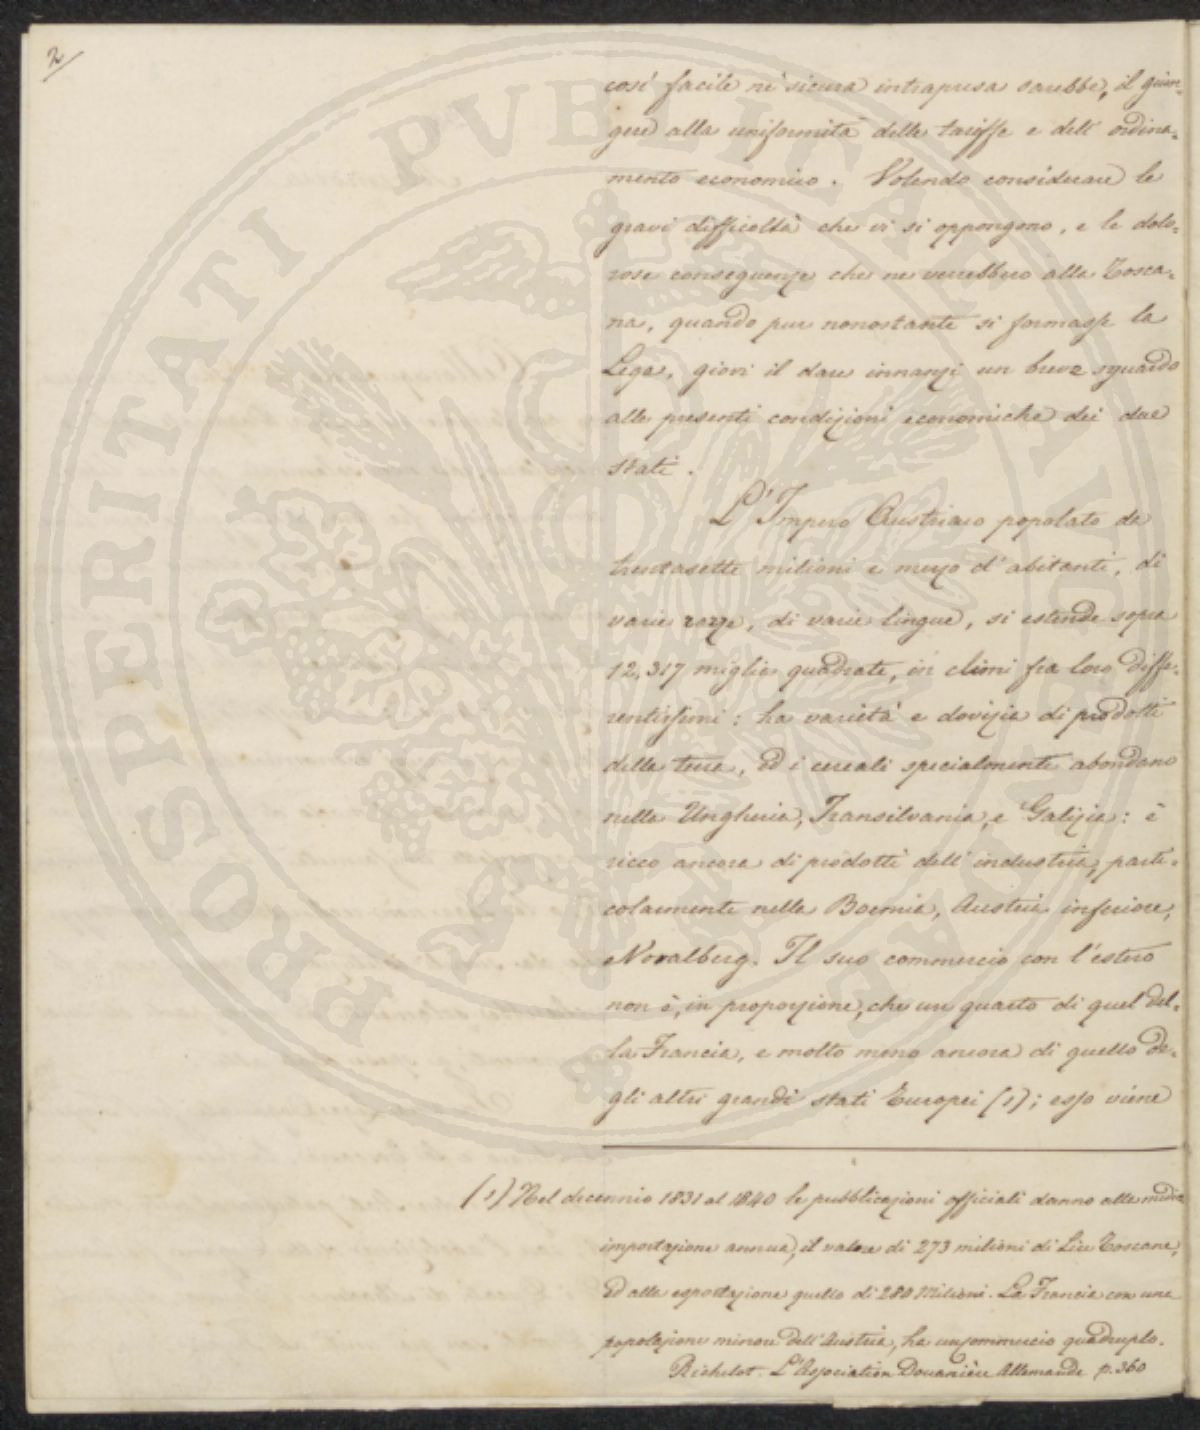 2/
così facile nè sicura intrapresa sarebbe, il giun-
gere alla uniformità delle tariffe e dell' ordina-
mento economico. Volendo considerare le
gravi difficoltà che vi si oppongono, e le dolo-
rose conseguenze che ne verrebbero alla Tosca-
na, quando pur nonostante si formasse la
Lega, giovi il dare innanzi un breve sguardo
alle presenti condizioni economiche dei due
stati.
L'Impero Austriaco popolato da
trentasette milioni e mezzo d'abitanti, di
varie razze, di varie lingue, si estende sopra
12,317 miglia quadrate, in climi fra loro diffe-
rentissimi: ha varietà e dovizia di prodotti
della terra, ed i cereali specialmente abondano
nella Ungheria, Transilvania, e Galizia: è
ricco ancora di prodotti dell' industria, parti-
colarmente nella Boemia, Austria inferiore,
Voralberg. Il suo commercio con l'estero
non è, in proporzione, che un quarto di quel del-
la Francia, e molto meno ancora di quello de-
gli altri grandi stati Europei (1); esso viene
(1) Nel decennio 1831 al 1840 le pubblicazioni officiali danno alla media
importazione annua, il valore di 273 milioni di Lire Toscane,
ed alla esportazione quello di 280 Milioni. La Francia con una
popolazione minore dell'Austria, ha un commercio quadruplo.
Richelot. L'Association Douanière Allemande p. 360
PROSPERITATI PUBLICAE AUGENDAE